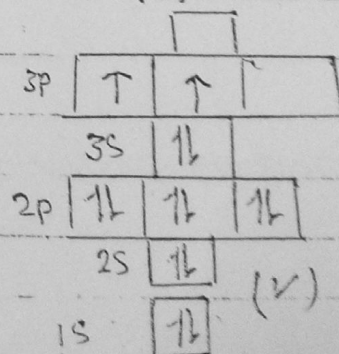 3p ↑ ↑
3s ⥮
2p ⥮ ⥮ ⥮
2s ⥮
(v)
1s ⥮